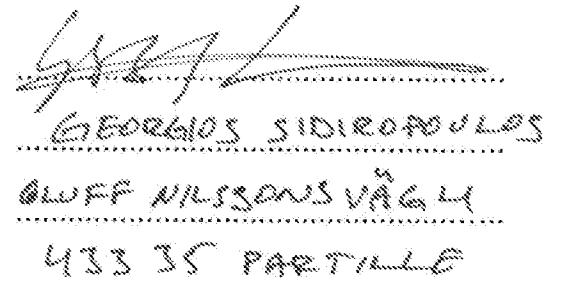 GEORGIOS SIDIROPOULOS
OLUFF NILSSONS VÄG 4
433 35 PARTILLE